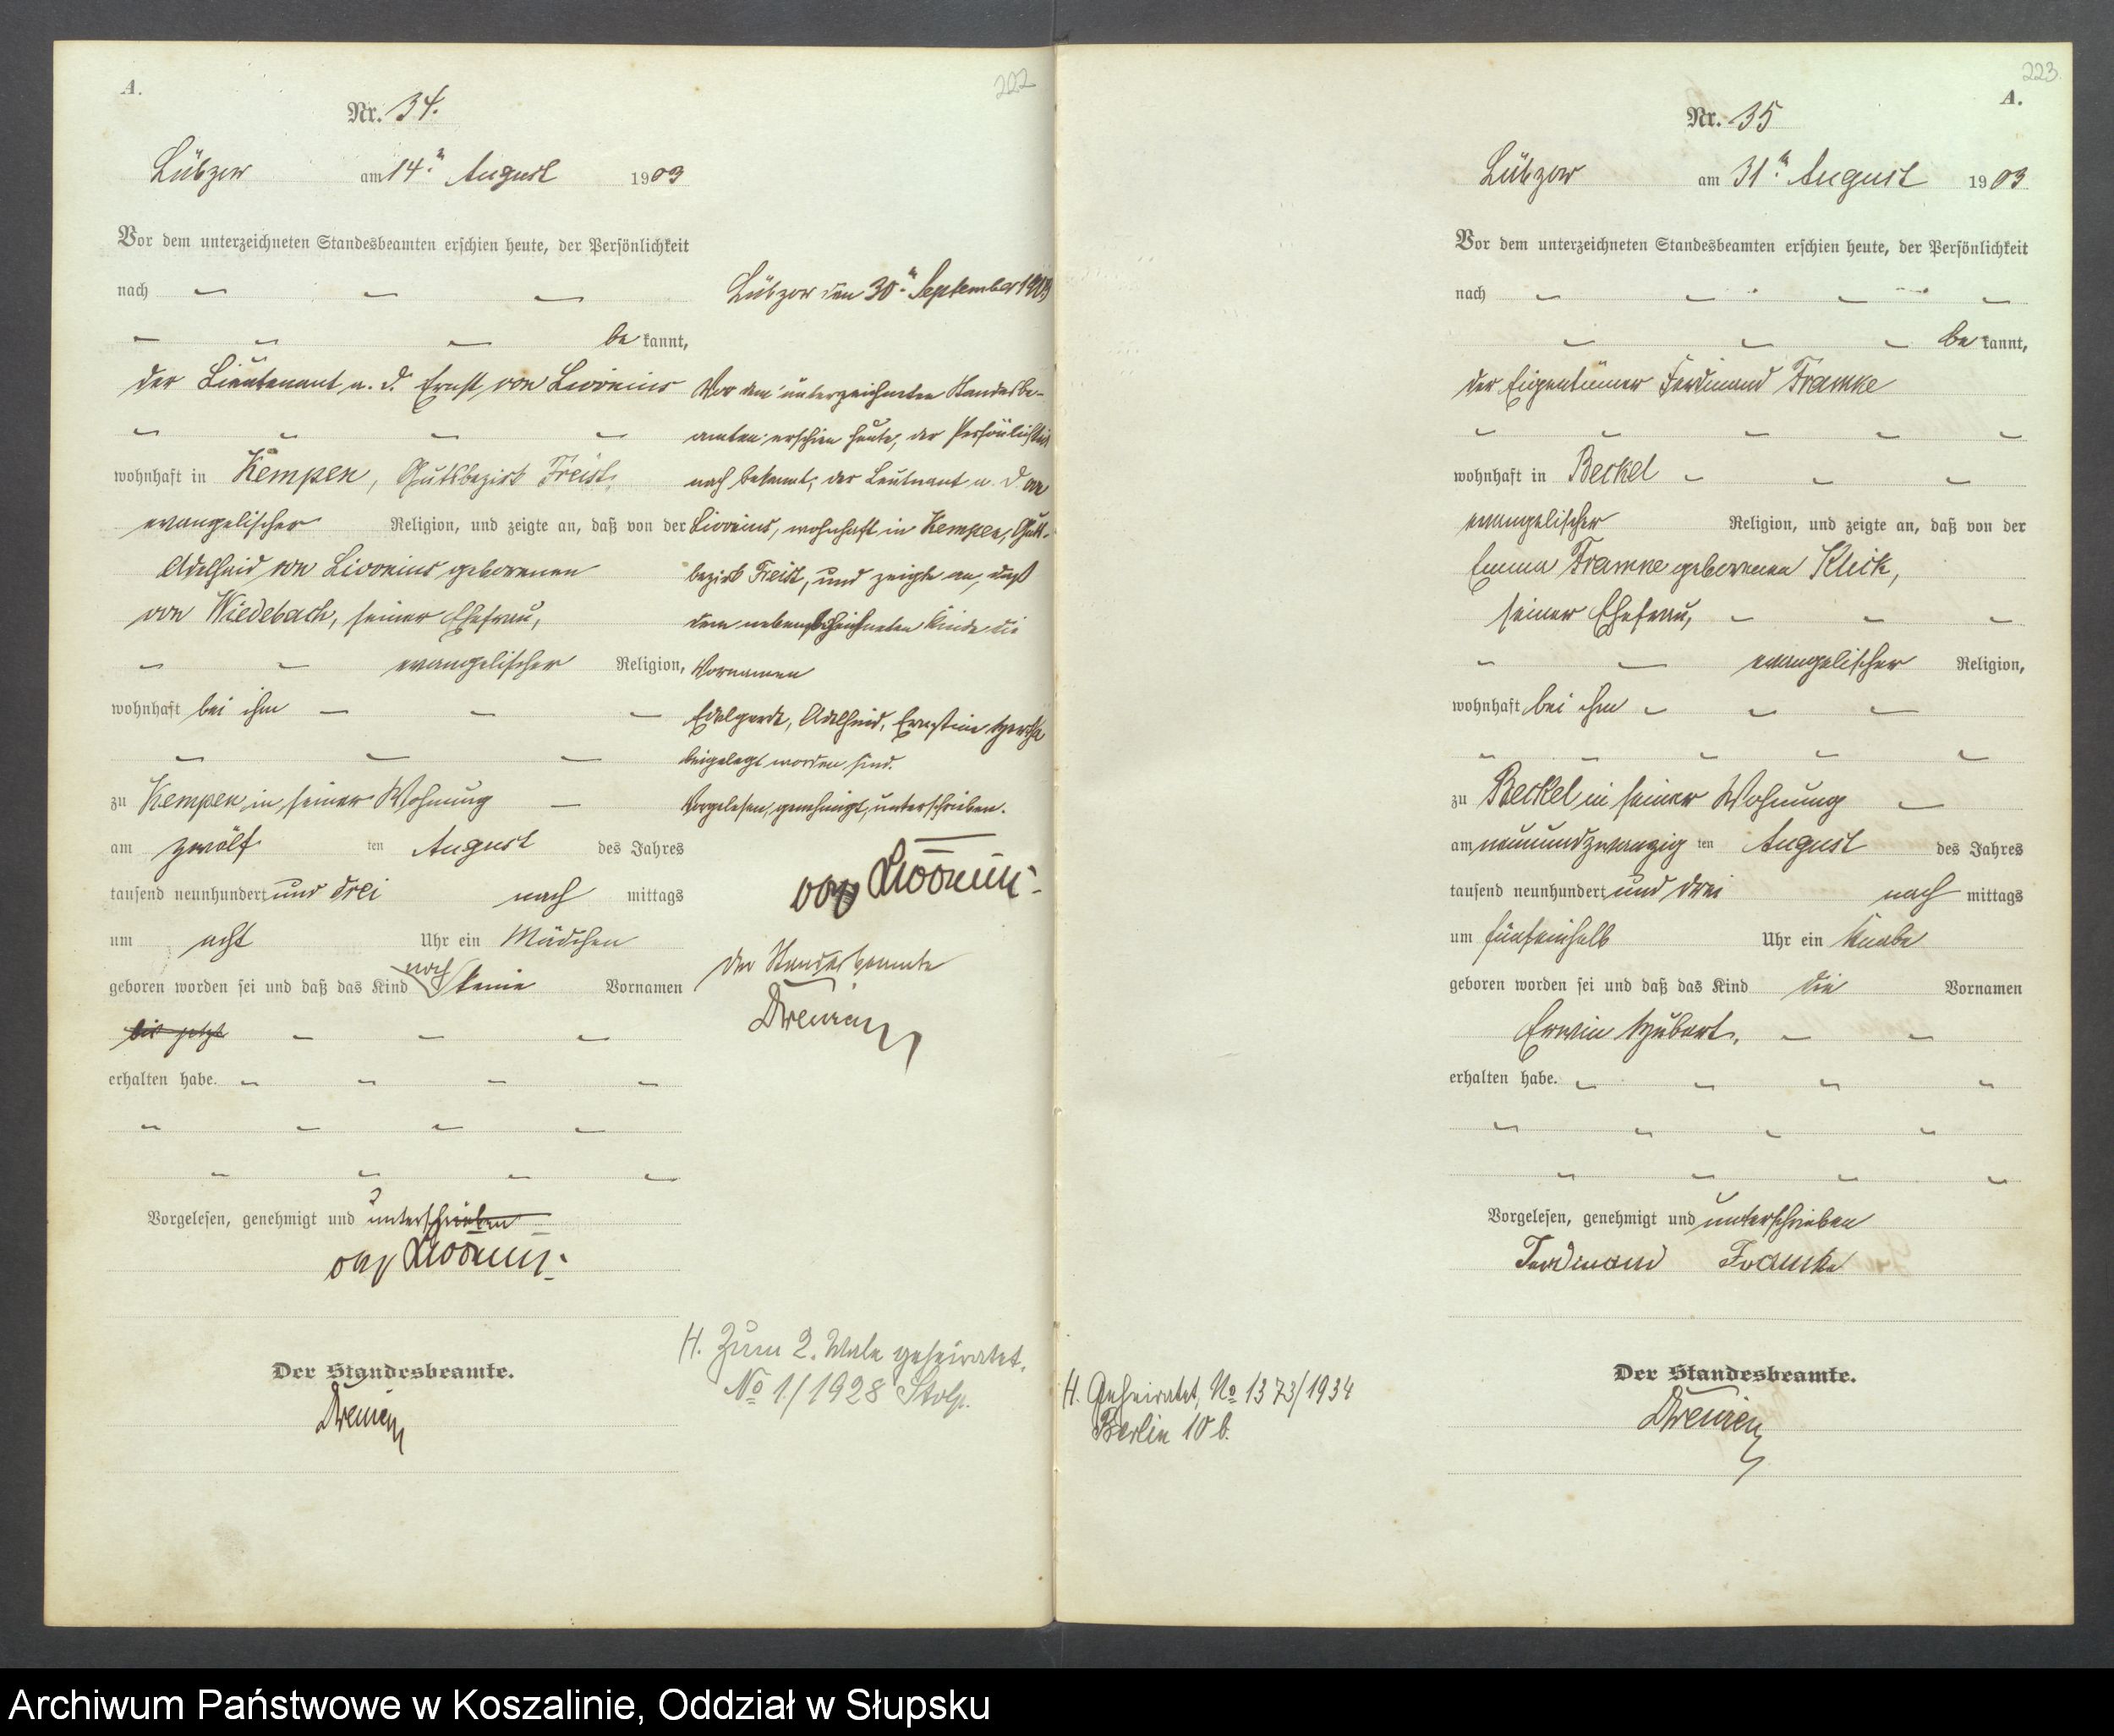 A.
222
Nr. 34.
Lübzow am 14ᵗ August 1903
Vor dem unterzeichneten Standesbeamten erschien heute, der Persönlichkeit
nach
be kannt,
der Lieutenant a. D. Ernst von Livonius
wohnhaft in Kempen, Gutsbezirk Freist,
evangelischer Religion, und zeigte an, daß von der
Adelheid von Livonius geborenen
von Wiedebach, seiner Ehefrau,
evangelischer Religion,
wohnhaft bei ihm
zu Kempen in seiner Wohnung
am zwölf ten August des Jahres
tausend neunhundert und drei nach mittags
um acht Uhr ein Mädchen
geboren worden sei und daß das Kind noch keine Vornamen
bis jetzt
erhalten habe.
Vorgelesen, genehmigt und unterschrieben
von Livonius.
Der Standesbeamte.
Lübzow den 30ᵗ September 1903
Vor dem unterzeichneten Standesbe-
amten erschien heute, der Persönlichkeit
nach bekannt, der Leutnant a. D. von
Livonius, wohnhaft in Kempen, Guts-
bezirk Freist, und zeigte an, daß
dem nebenbezeichneten Kinde die
Vornamen
Edelgarde, Adelheid, Ernestine Hertha
beigelegt worden sind.
Vorgelesen, genehmigt, unterschrieben.
von Livonius.
Der Standesbeamte
H. Zum 2. Male geheiratet.
No 1/1928 Stolp.
223
A.
Nr. 35
Lübzow am 31ᵗ August 1903
Vor dem unterzeichneten Standesbeamten erschien heute, der Persönlichkeit
nach
be kannt,
der Eigentümer Ferdinand Framke
wohnhaft in Beckel
evangelischer Religion, und zeigte an, daß von der
Emma Framke geborenen Klick,
seiner Ehefrau,
evangelischer Religion,
wohnhaft bei ihm
zu Beckel in seiner Wohnung
am neunundzwanzig ten August des Jahres
tausend neunhundert und drei nach mittags
um fünfeinhalb Uhr ein Knabe
geboren worden sei und daß das Kind die Vornamen
Erwin Hubert,
erhalten habe.
Vorgelesen, genehmigt und unterschrieben
Ferdinand Framke
Der Standesbeamte.
H. Geheiratet, No 1373/1934
Berlin 10 b.
Archiwum Państwowe w Koszalinie, Oddział w Słupsku